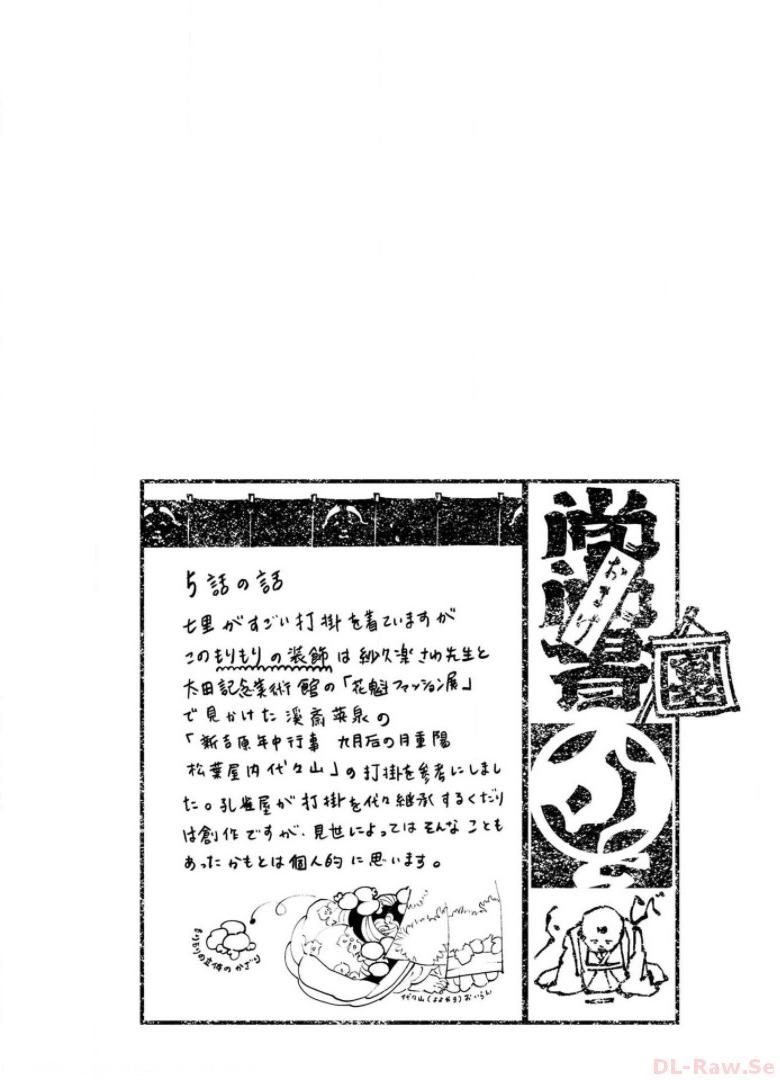 おまけ
5話の話
七里がすごい打掛を着ていますが
このもりもりの装飾は紗久楽さわ先生と
太田記念美術館の「花魁ファッション展」
で見かけた渓斎英泉の
「新吉原年中行事 九月后の月重陽
松葉屋内代々山」の打掛を参考にしまし
た。孔雀屋が打掛を代々継承するくだり
は創作ですが、見世によってはそんなことも
あったかもとは個人的に思います。
もりもりの立体のかざり
代々山(よよやま)おいらん
DL-Raw.Se